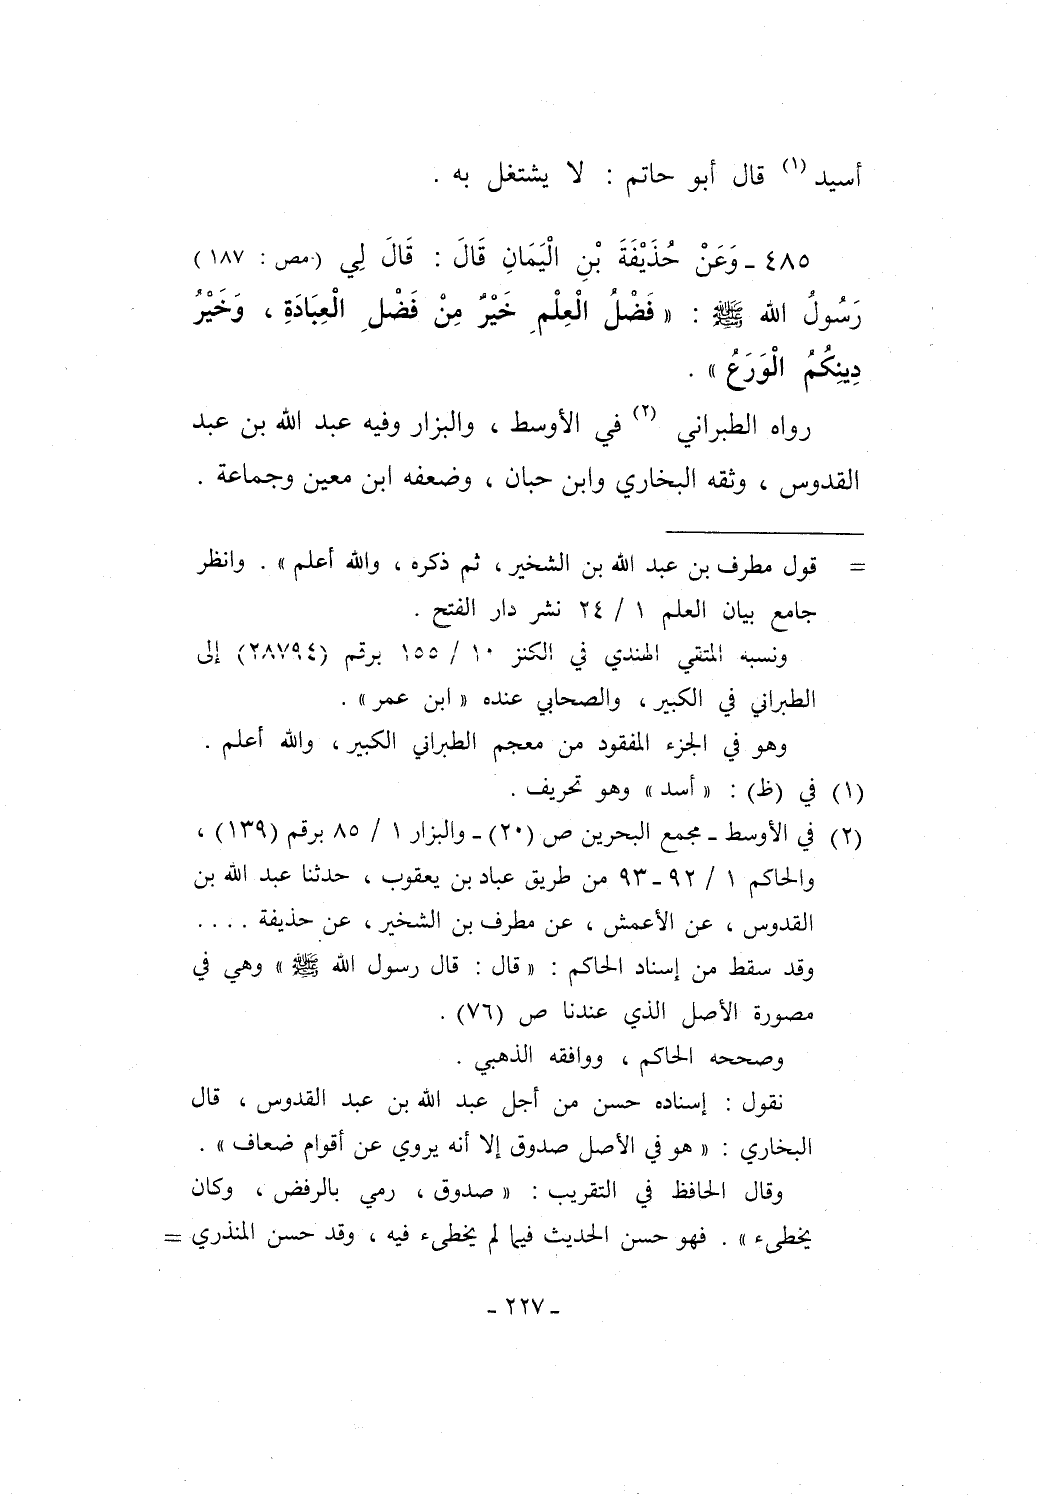 أسيد (١) قال أبو حاتم : لا يشتغل به .
٤٨٥ ـ وَعَنْ حُذَيْفَةَ بْنِ الْيَمَانِ قَالَ : قَالَ لِي (مص : ١٨٧)
رَسُولُ الله ﷺ : « فَضْلُ الْعِلْمِ خَيْرٌ مِنْ فَضْلِ الْعِبَادَةِ ، وَخَيْرُ
دِينِكُمُ الْوَرَعُ » .
رواه الطبراني (٢) في الأوسط ، والبزار وفيه عبد الله بن عبد
القدوس ، وثقه البخاري وابن حبان ، وضعفه ابن معين وجماعة .
= قول مطرف بن عبد الله بن الشخير ، ثم ذكره ، والله أعلم » . وانظر
جامع بيان العلم ١ / ٢٤ نشر دار الفتح .
ونسبه المتقي الهندي في الكنز ١٠ / ١٥٥ برقم (٢٨٧٩٤) إلى
الطبراني في الكبير ، والصحابي عنده « ابن عمر » .
وهو في الجزء المفقود من معجم الطبراني الكبير ، والله أعلم .
(١) في (ظ) : « أسد » وهو تحريف .
(٢) في الأوسط ـ مجمع البحرين ص (٢٠) ـ والبزار ١ / ٨٥ برقم (١٣٩) ،
والحاكم ١ / ٩٢ ـ ٩٣ من طريق عباد بن يعقوب ، حدثنا عبد الله بن
القدوس ، عن الأعمش ، عن مطرف بن الشخير ، عن حذيفة ....
وقد سقط من إسناد الحاكم : « قال : قال رسول الله ﷺ » وهي في
مصورة الأصل الذي عندنا ص (٧٦) .
وصححه الحاكم ، ووافقه الذهبي .
نقول : إسناده حسن من أجل عبد الله بن عبد القدوس ، قال
البخاري : « هو في الأصل صدوق إلا أنه يروي عن أقوام ضعاف » .
وقال الحافظ في التقريب : « صدوق ، رمي بالرفض ، وكان
يخطىء » . فهو حسن الحديث فيما لم يخطىء فيه ، وقد حسن المنذري =
ـ ٢٢٧ ـ